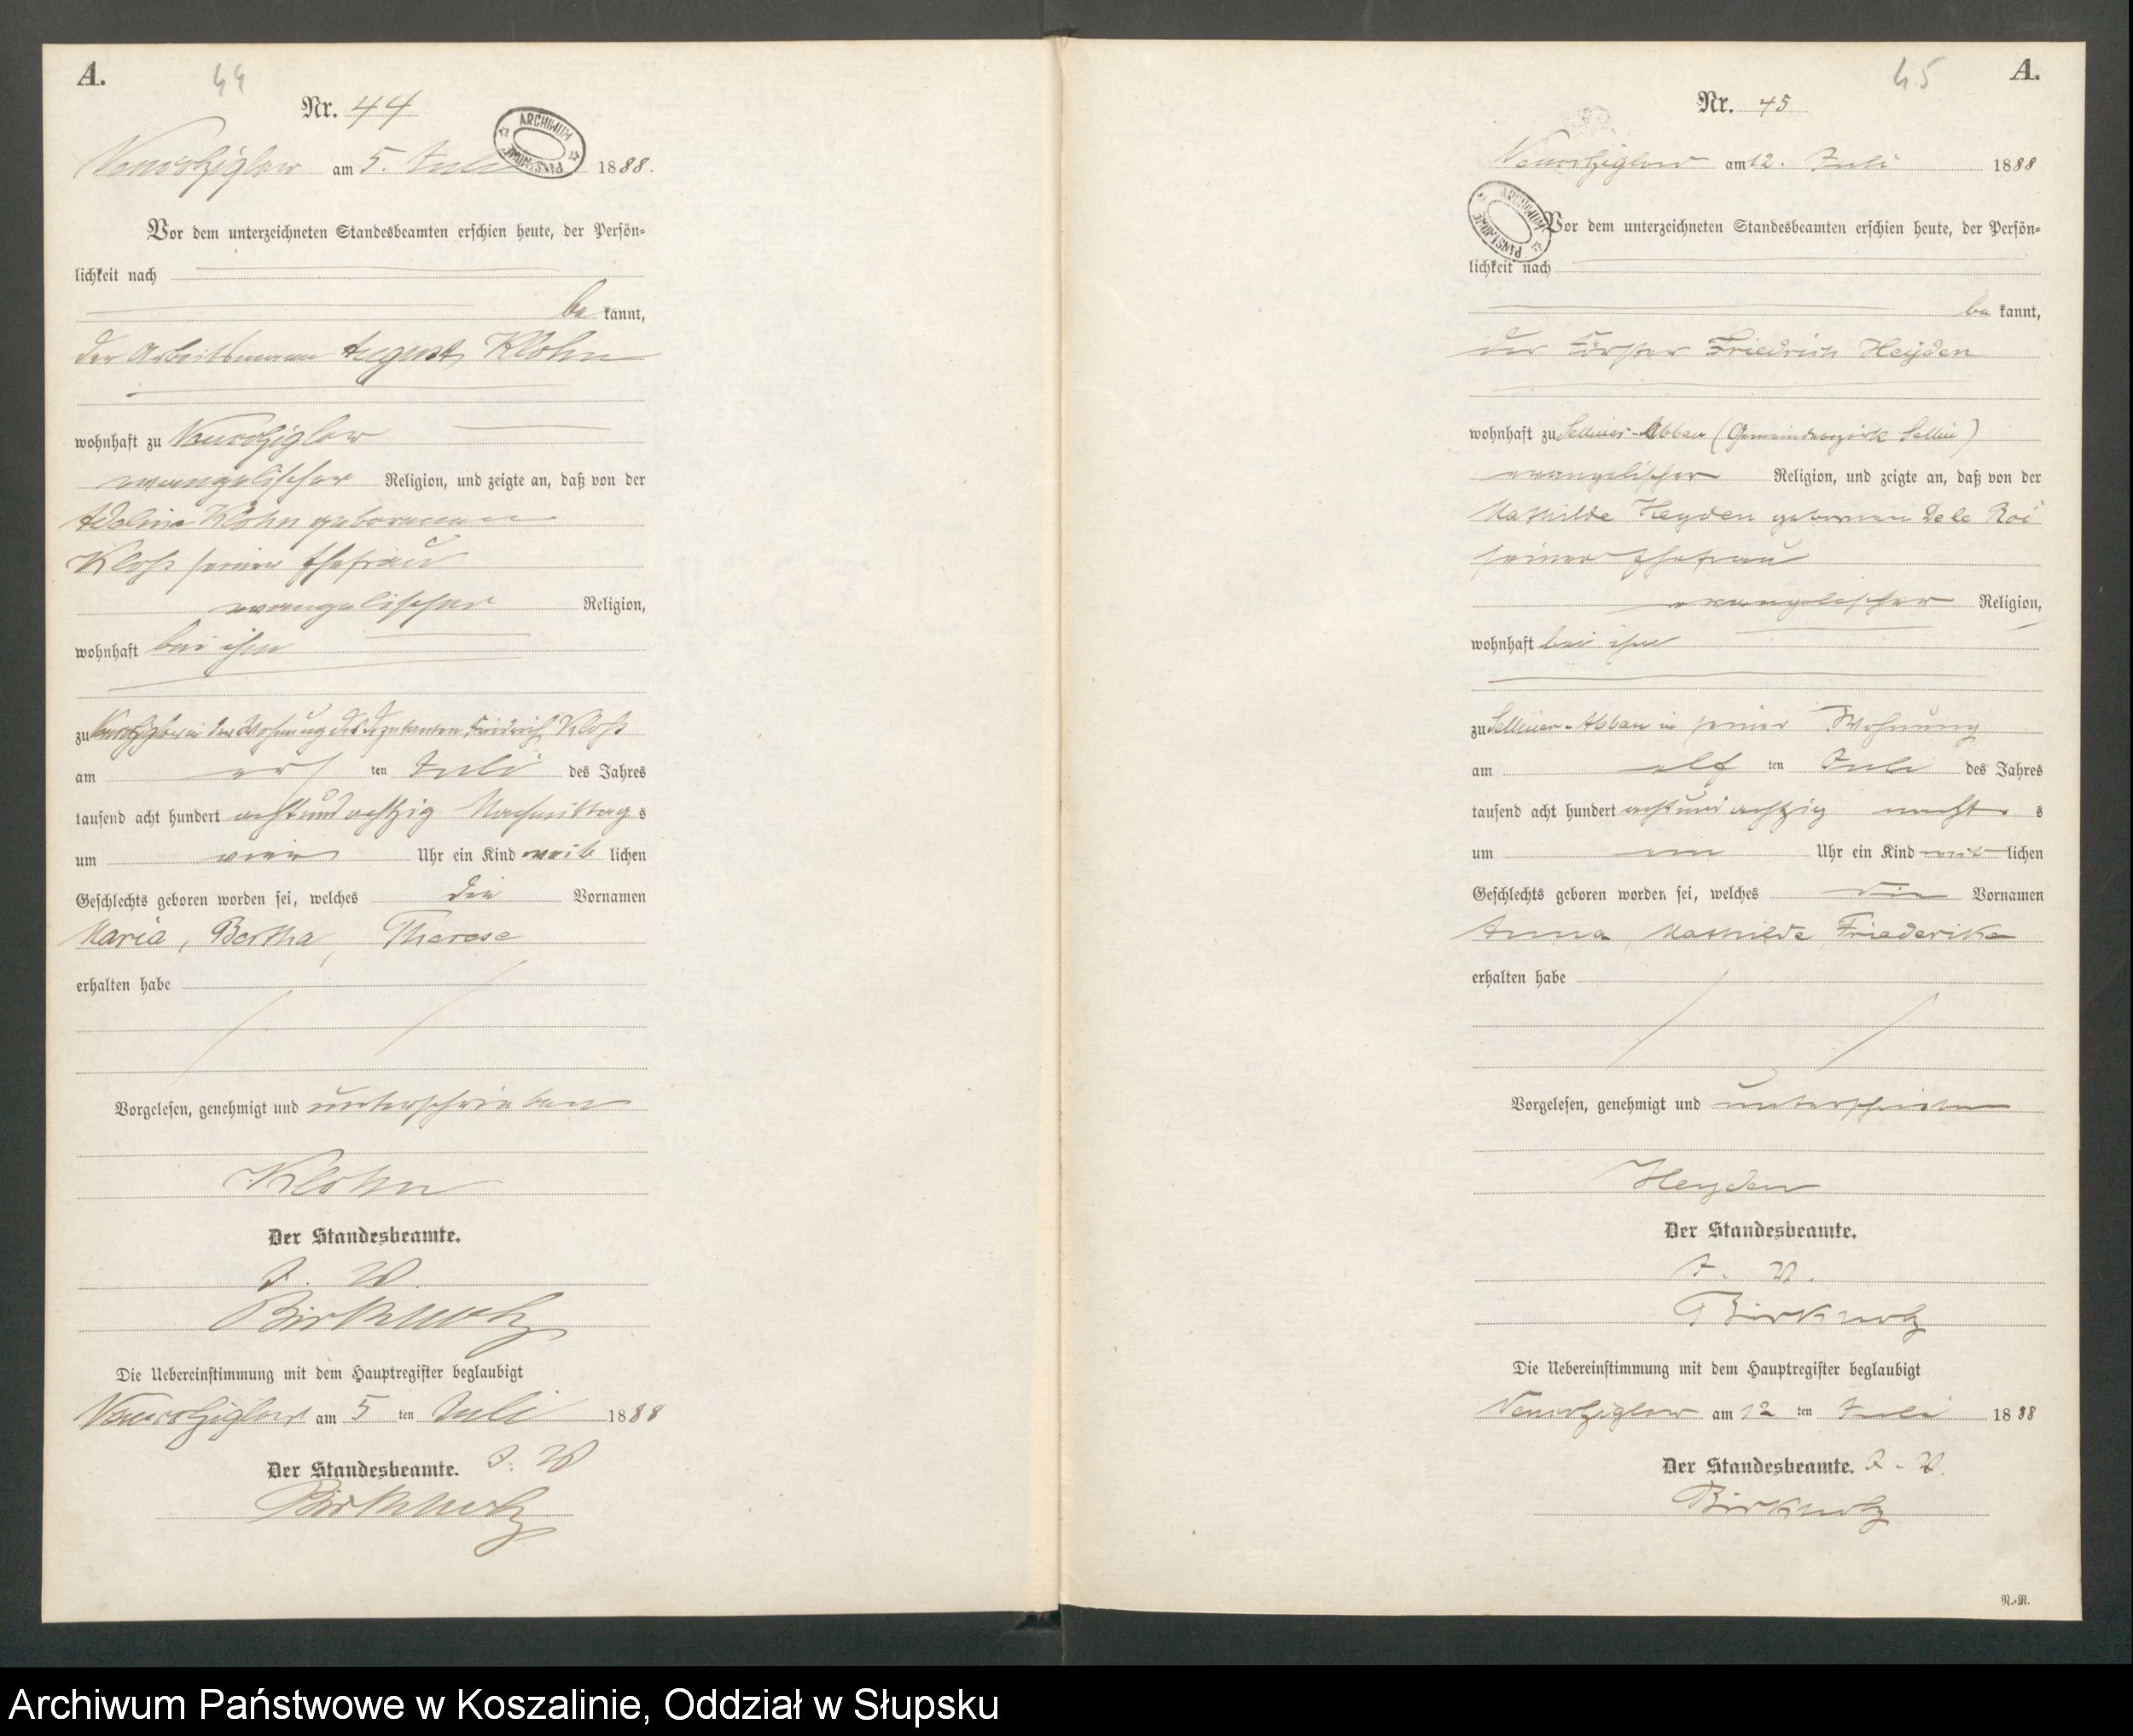 A.
44
Nr. 44
ARCHIWUM PAŃSTWOWE
am 5. Juli 1888.
Vor dem unterzeichneten Standesbeamten erschien heute, der Persön-
lichkeit nach
be kannt,
der Arbeitsmann August Klohn
wohnhaft zu
evangelischer Religion, und zeigte an, daß von der
Adeline Klohn geborenen
Kloß seiner Ehefrau
evangelischer Religion,
wohnhaft bei ihm
zu in der Wohnung des Friedrich Kloß
am ersten Juli des Jahres
tausend acht hundert achtundachtzig Nachmittags
um Uhr ein Kind weiblichen
Geschlechts geboren worden sei, welches die Vornamen
Maria, Bertha, Therese
erhalten habe
Vorgelesen, genehmigt und unterschrieben
Klohn
Der Standesbeamte.
Die Uebereinstimmung mit dem Hauptregister beglaubigt
am 5 ten Juli 1888
Der Standesbeamte.
A.
45
Nr. 45
ARCHIWUM PAŃSTWOWE
am 12. Juli 1888
Vor dem unterzeichneten Standesbeamten erschien heute, der Persön-
lichkeit nach
be kannt,
der Förster Friedrich Heyden
wohnhaft zu Selliner-Abbau (Gemeindebezirk Sellin)
evangelischer Religion, und zeigte an, daß von der
Mathilde Heyden geborenen De le Roi
seiner Ehefrau
evangelischer Religion,
wohnhaft bei ihm
zu Selliner-Abbau in seiner Wohnung
am elf ten Juli des Jahres
tausend acht hundert achtundachtzig nachts
um ein Uhr ein Kind weiblichen
Geschlechts geboren worden sei, welches die Vornamen
Anna, Mathilde, Friederike
erhalten habe
Vorgelesen, genehmigt und unterschrieben
Heyden
Der Standesbeamte.
Die Uebereinstimmung mit dem Hauptregister beglaubigt
am 12 ten Juli 1888
Der Standesbeamte.
Archiwum Państwowe w Koszalinie, Oddział w Słupsku